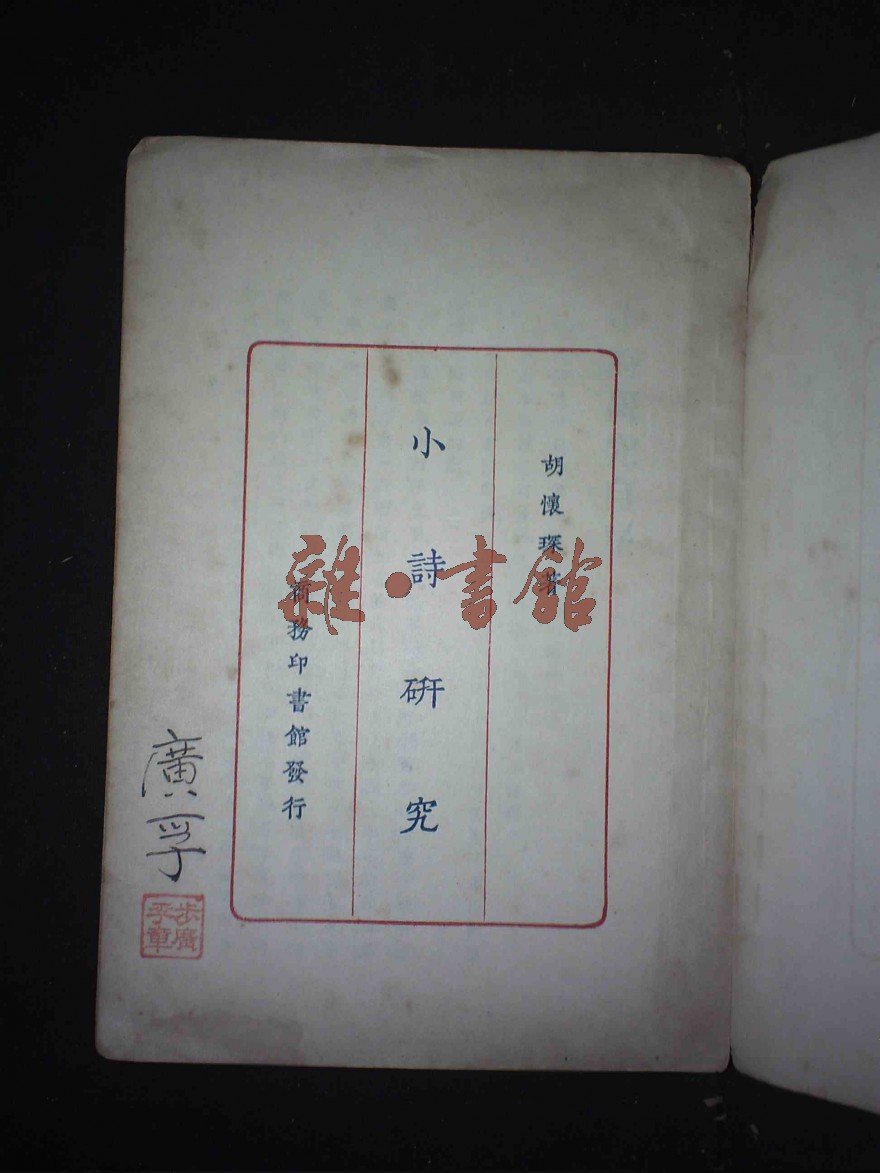 胡懷琛著
小詩研究
商務印書館發行
雜·書館
廣孚
步廣
孚章